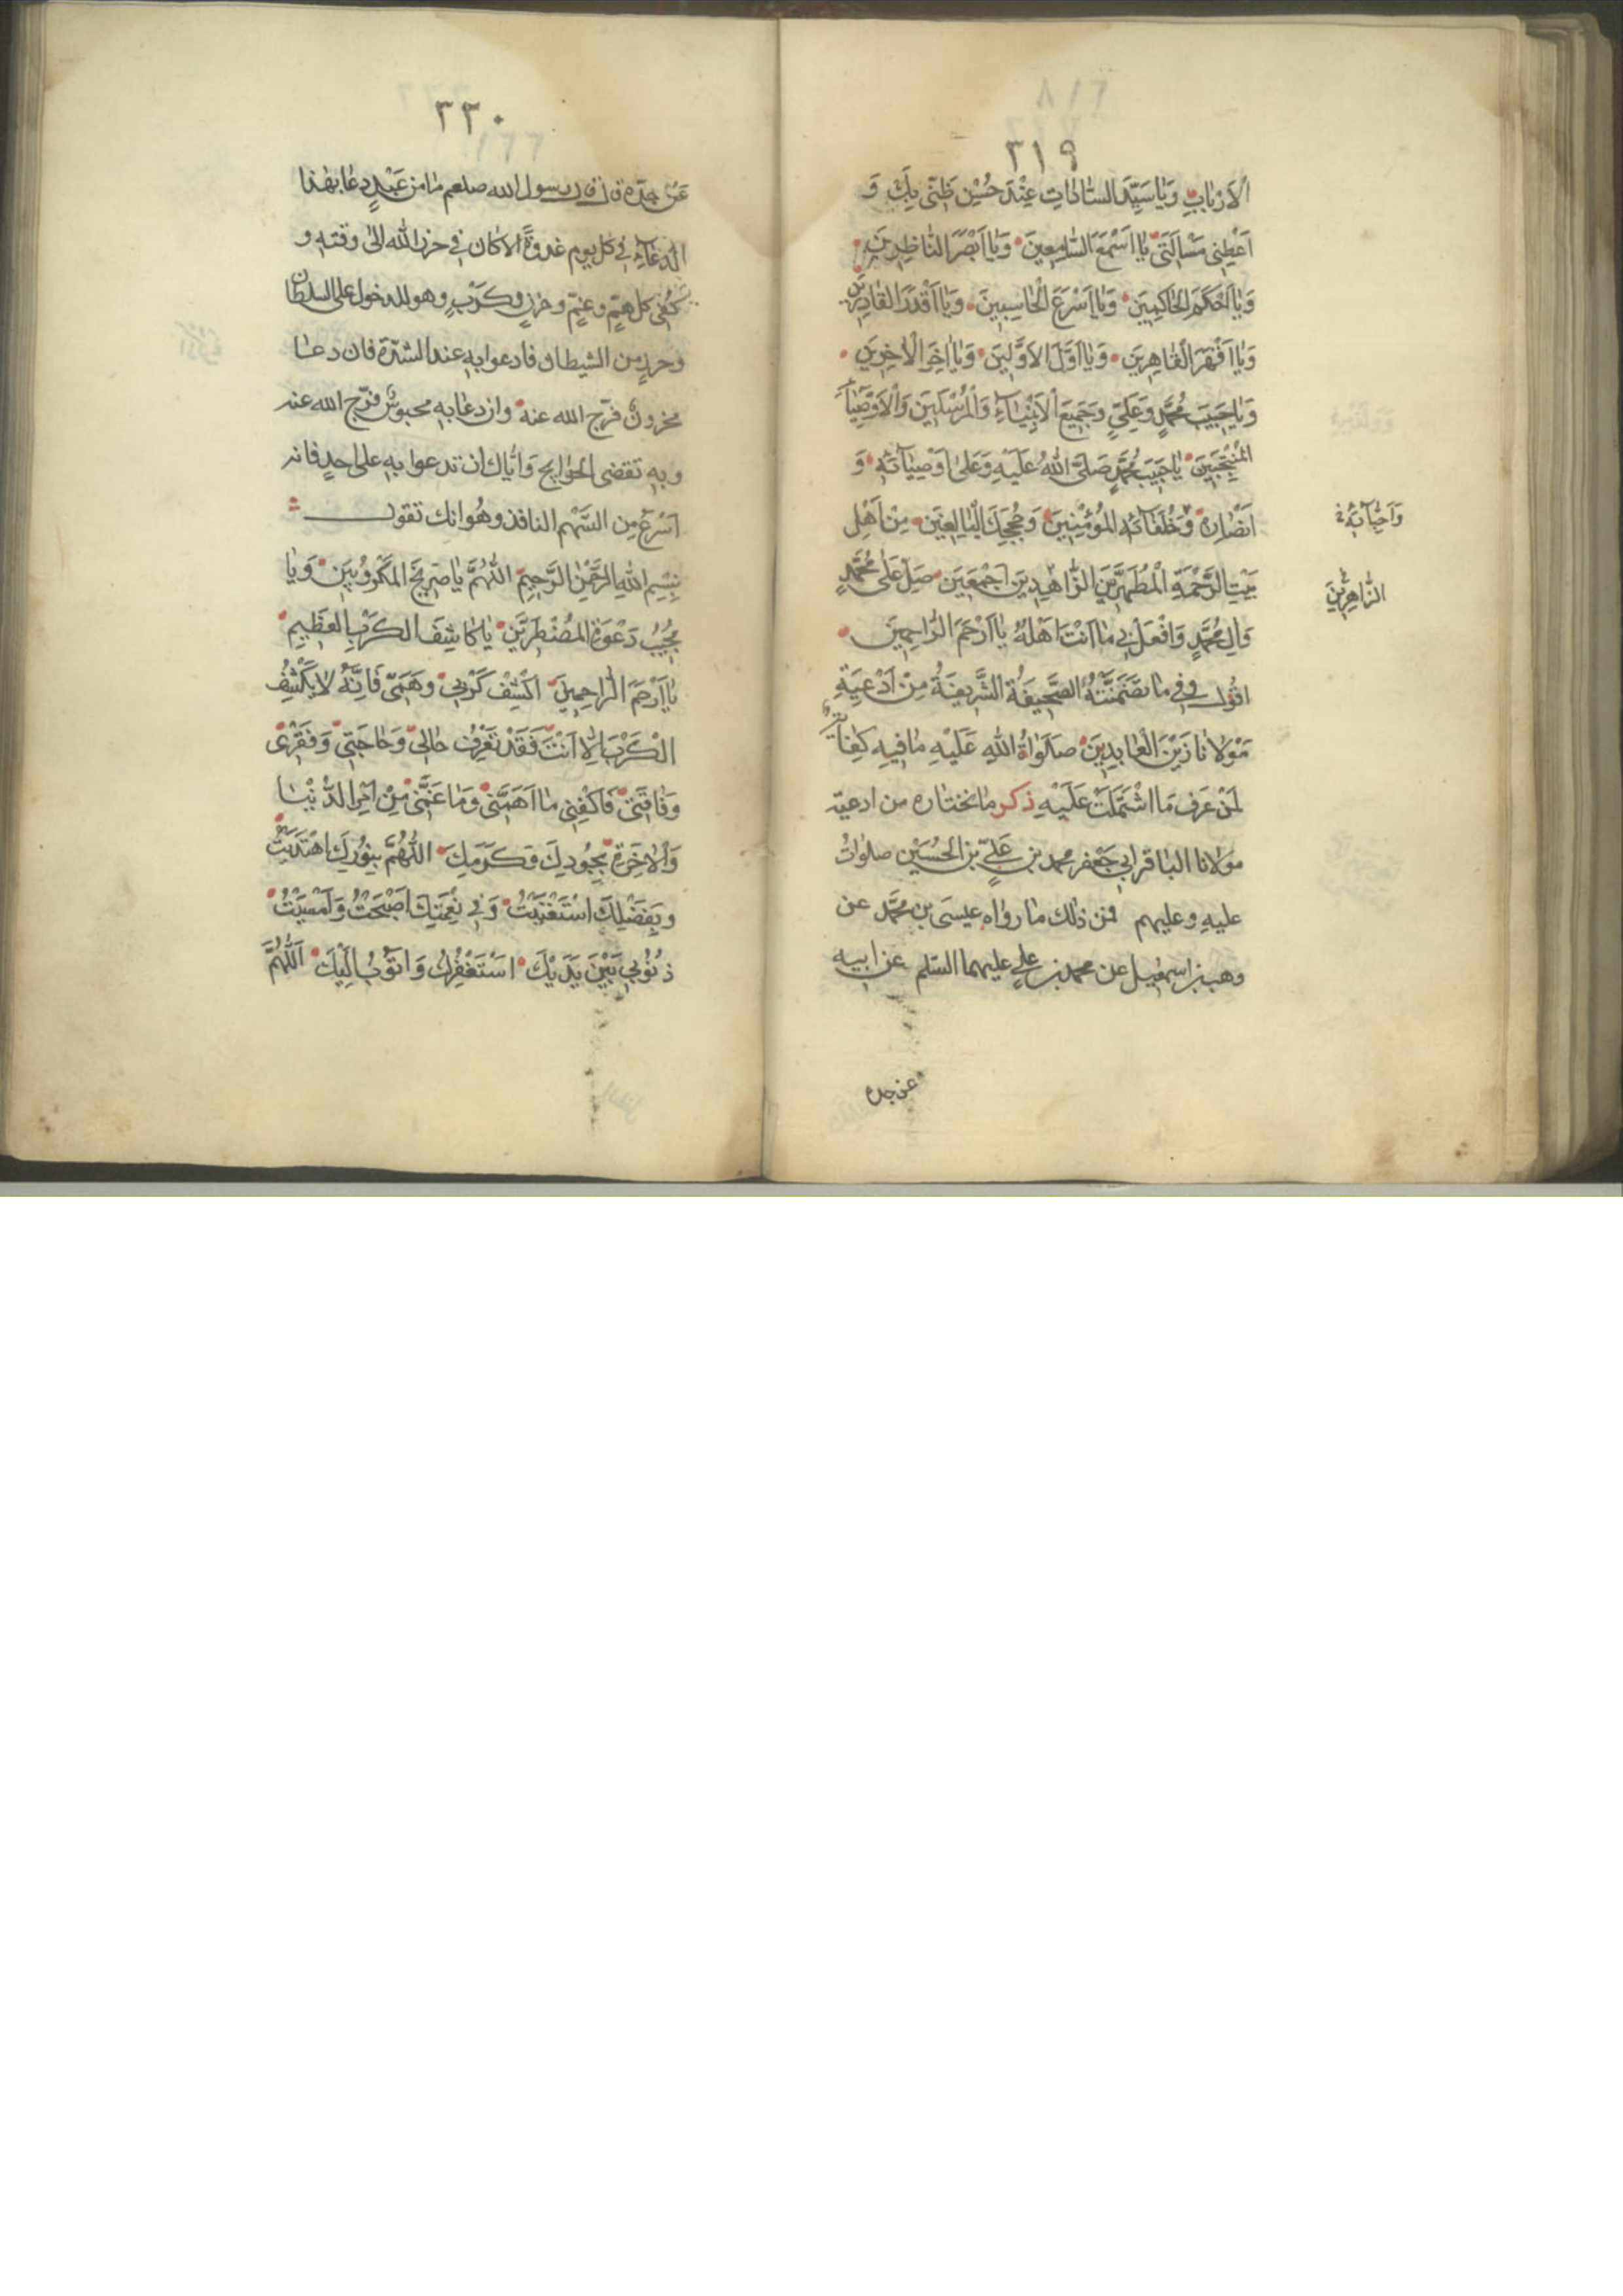 ٣١٩
الْاَرْبٰابِ وَيٰا سَيِّدَ السّٰادٰاتِ عِنْدَ حُسْنِ ظَنّى بِكَ وَ
اَعْطِنى مَسْاَلَتى يٰا اَسْمَعَ السّٰامِعينَ وَيٰا اَبْصَرَ النّٰاظِرينَ
وَيٰا اَحْكَمَ الْحٰاكِمينَ وَيٰا اَسْرَعَ الْحٰاسِبينَ وَيٰا اَقْدَرَ الْقٰادِرينَ
وَيٰا اَقْهَرَ الْقٰاهِرينَ وَيٰا اَوَّلَ الْاَوَّلينَ وَيٰا اٰخِرَ الْاٰخِرينَ
وَيٰا حَبيبَ مُحَمَّدٍ وَعَلِيٍّ وَجَميعِ الْاَنْبِيٰاءِ وَالْمُرْسَلينَ وَالْاَوْصِيٰاءِ
الْمُنْتَجَبينَ يٰا حَبيبَ مُحَمَّدٍ صَلَّى اللهُ عَلَيْهِ وَعَلىٰ اَوْصِيٰائِهِ وَ
اَنْصٰارِهِ وَخُلَفٰائِهِ الْمُؤْمِنينَ وَحُجَجِكَ الْبٰالِغينَ مِنْ اَهْلِ
وَاَحِبّٰائِهِ
بَيْتِ الرَّحْمَةِ الْمُطَهَّرينَ الزّٰاهِدينَ اَجْمَعينَ صَلِّ عَلىٰ مُحَمَّدٍ
الزّٰاهِرينَ
وَاٰلِ مُحَمَّدٍ وَافْعَلْ بى مٰا اَنْتَ اَهْلُهُ يٰا اَرْحَمَ الرّٰاحِمينَ
اقول وفى ما تضَمَّنَتْهُ الصَّحيفَةُ الشَّريفَةُ مِنْ اَدْعِيَةِ
مَوْلانٰا زَيْنِ الْعٰابِدينَ صَلَوٰاةُ اللهِ عَلَيْهِ مٰا فيهِ كِفٰايَةٌ
لِمَنْ عَرَفَ مَا اشْتَمَلَتْ عَلَيْهِ ذكر ما نختاره من ادعية
مولانا الباقر ابى جَعْفر محمد بن عَلِيّ بن الحُسَيْن صلوٰاتُ
عليهِ وعليهم فمن ذلك ما رواه عيسَى بن محمَّد عن
وهب بن اسمعيل عن محمد بن علي عليهما السّلم عن ابيه
عن جده
٣٢٠
عَنْ جدّه قال قال رسول الله صلعم مٰا من عَبْدٍ دعٰا بهٰذا
الدّعٰاءِ فى كل يوم غدوةً الا كان فى حرز الله الىٰ وقته و
كُفِى كل همٍّ وغمٍّ وحزنٍ وكَرْبٍ وهو للدخول على السلطان
وحرزٍ من الشيطان فادعوا به عند الشدّة فان دعٰا
محزونٌ فرّج الله عنه وان دعٰا به محبوسٌ فرّج الله عنه
وبه تقضى الحوٰايج وَايّٰاك ان تدعوا به على احدٍ فانه
اَسْرَعُ مِن السَّهْم النافذ وهُوَ انك تقول
بِسْمِ اللهِ الرَّحْمٰنِ الرَّحيمِ اللّٰهُمَّ يٰا صَريخَ الْمَكْرُوبينَ وَيٰا
مُجيبَ دَعْوَةِ الْمُضْطَرّينَ يٰا كٰاشِفَ الْكَرْبِ الْعَظيمِ
يٰا اَرْحَمَ الرّٰاحِمينَ اكْشِفْ كَرْبى وَهَمّى فَاِنَّهُ لا يَكْشِفُ
الْكَرْبَ اِلّا اَنْتَ فَقَدْ تَعْرِفُ حٰالى وَحٰاجَتى وَفَقْرى
وَفٰاقَتى فَاكْفِنى مٰا اَهَمَّنى وَمٰا غَمَّنى مِنْ اَمْرِ الدُّنْيٰا
وَالْاٰخِرَةِ بِجُودِكَ وَكَرَمِكَ اللّٰهُمَّ بِنُورِكَ اهْتَدَيْتُ
وَبِفَضْلِكَ اسْتَغْنَيْتُ وَفى نِعْمَتِكَ اَصْبَحْتُ وَاَمْسَيْتُ
ذُنُوبى بَيْنَ يَدَيْكَ اَسْتَغْفِرُكَ وَاَتُوبُ اِلَيْكَ اَللّٰهُمَّ